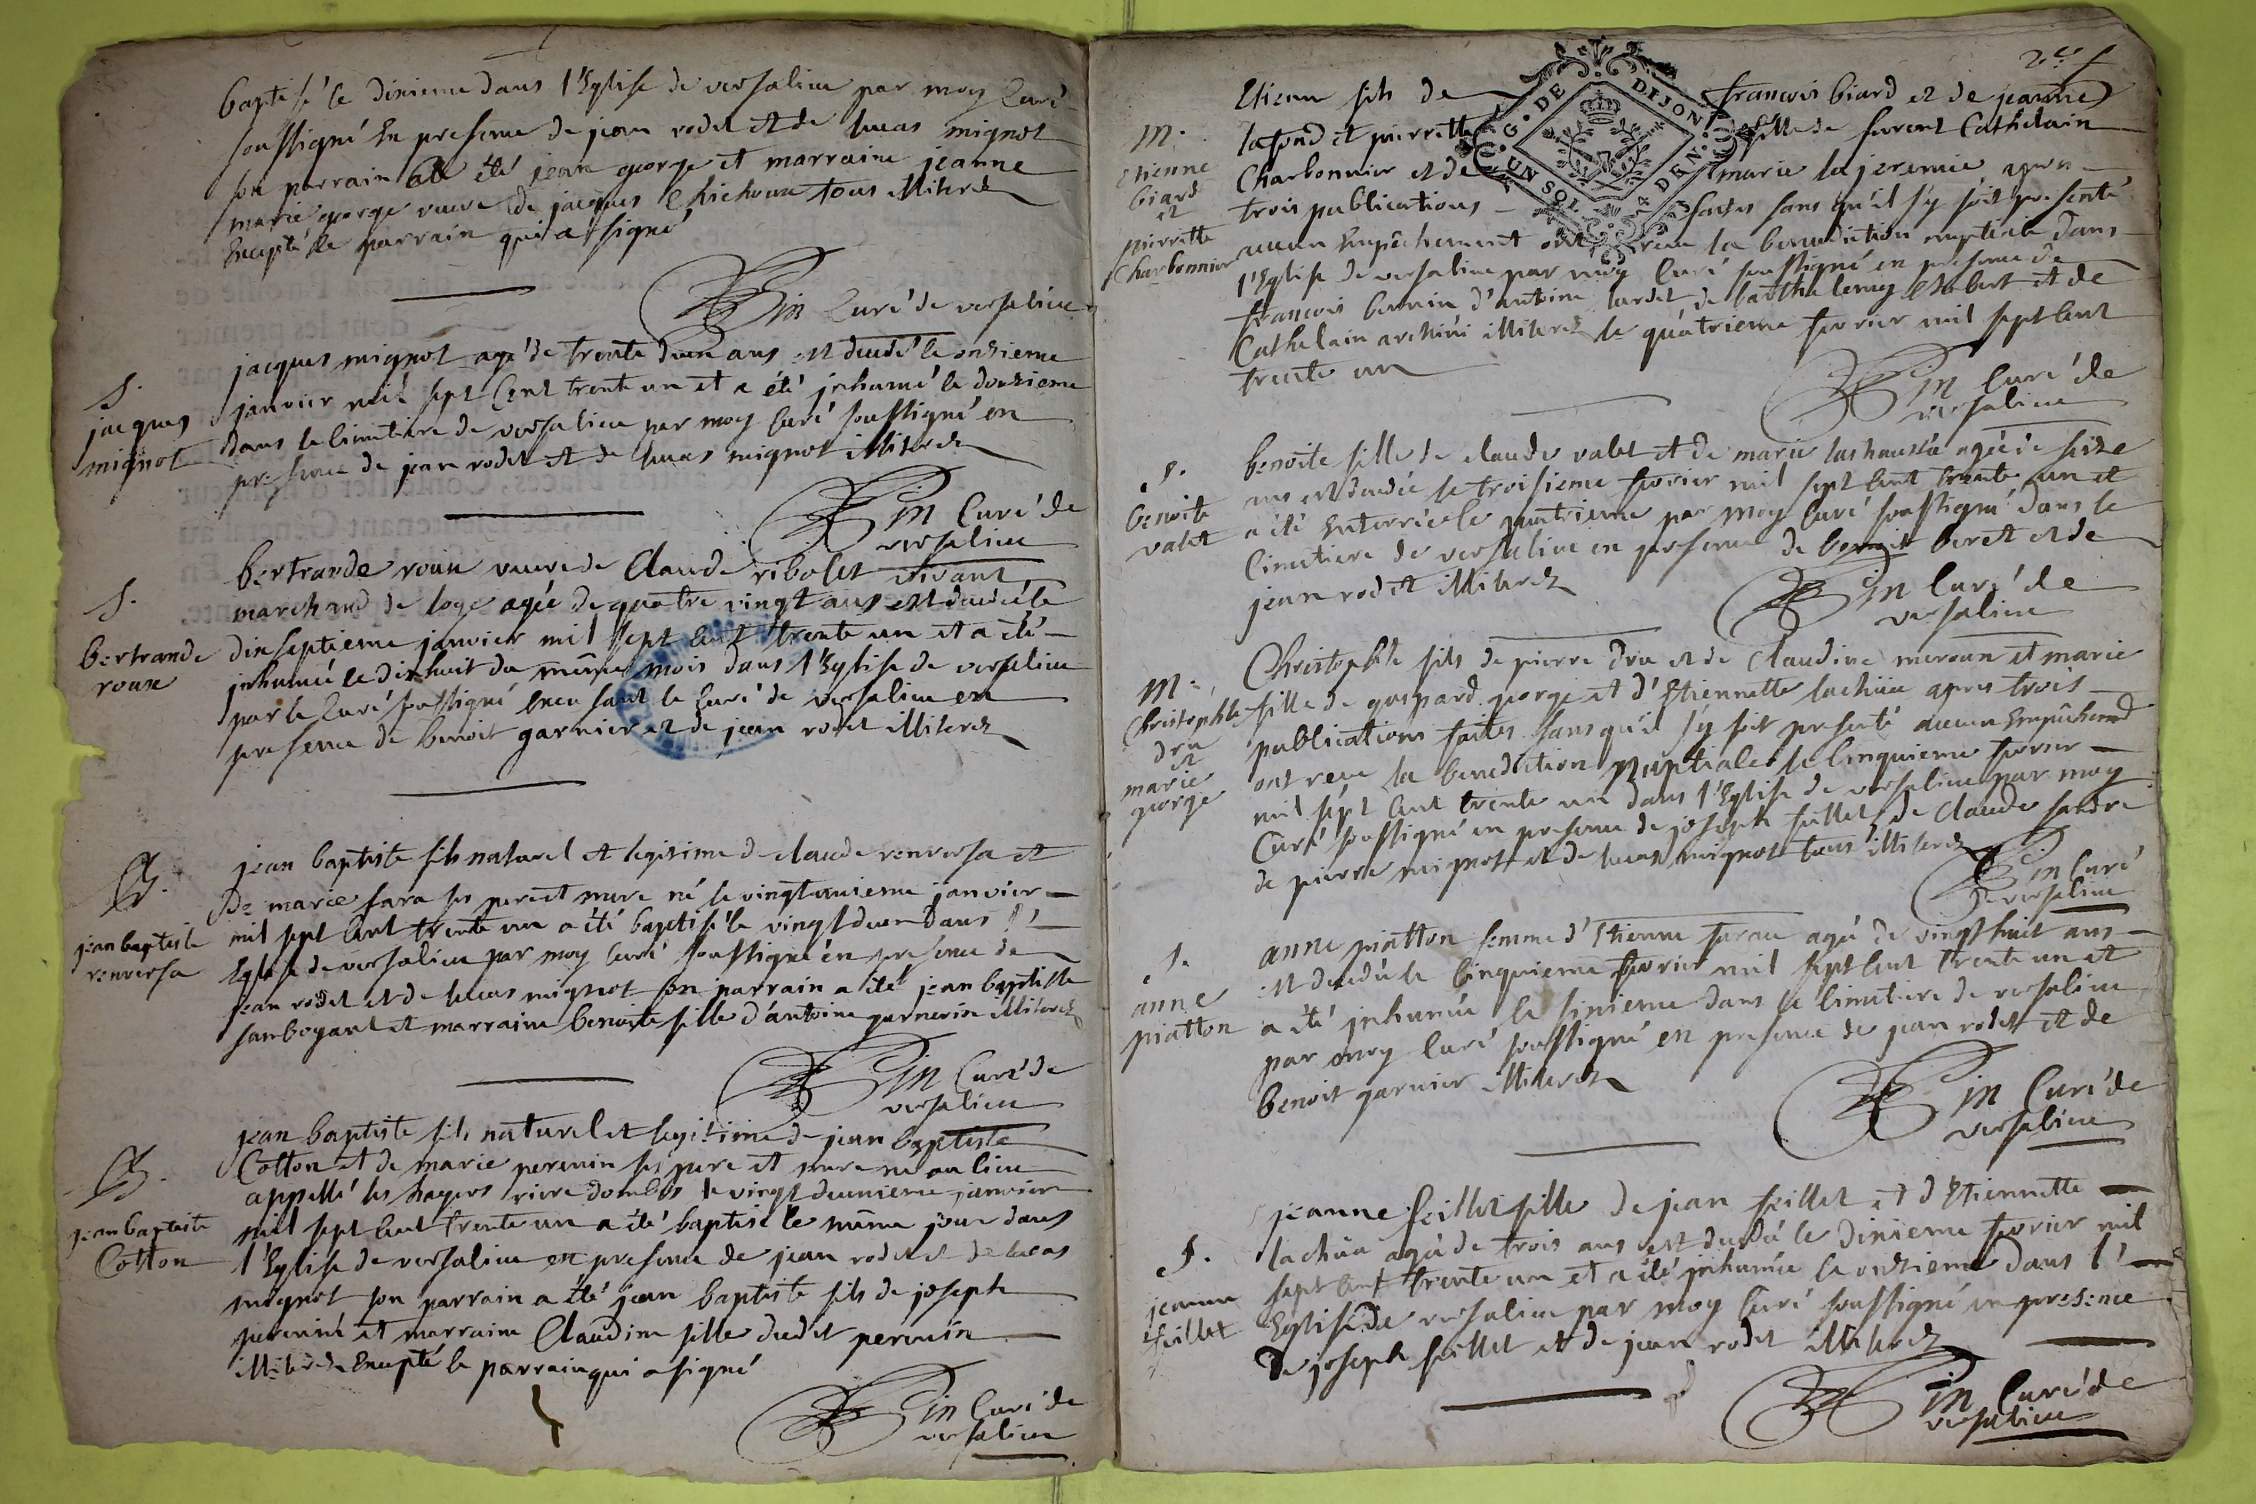 baptisé le dixieme dans l'Eglise de versalieu par moy Curé
soussigné En presence de jean rodet et de lucas mignot
son parrain a été jean george et marraine jeanne
marie george veuve de jacques Chichoux tous illiterez
Excepté le parrain qui a signé
Curé de versalieu
S.
jacques
mignot
jacques mignot agé de trente deux ans est decedé le onzieme
janvier mil sept Cent trente un et a été jnhumé le douzieme
dans le Cimitiere de versalieu par moy Curé soussigné en
presence de jean rodet et de lucas mignot illiterez
Curé de
versalieu
S.
bertrande
roux
bertrande roux veuve de Claude ribolet vivant
marchand de loge agée de quatre vingt ans est decedée le
dixseptieme janvier mil sept Cent trente un et a été
jnhumée le dixhuit du même mois dans l'Eglise de versalieu
par le Curé soussigné le Curé de versalieu en
presence de benoit garnier et de jean rodet illiterez
B.
jean baptiste
renversa
jean baptiste fils naturel et legitime de claude renversa et
de marie fara ses pere et mere né le vingtunieme janvier
mil sept Cent trente un a été baptisé le vingtdeux dans l'
Eglise de versalieu par moy Curé soussigné en presence de
jean rodet et de lucas mignot son parrain a été jean baptiste
et marraine benoite fille d'antoine illiterez
Curé de
versalieu
B.
jean baptiste
Cotton
jean baptiste fils naturel et legitime de jean baptiste
Cotton et de marie perenin ses pere et mere né au lieu
appellé les le vingt deuxieme janvier
mil sept Cent trente un a été baptisé le même jour dans
l'Eglise de versalieu en presence de jean rodet et de lucas
mignot son parrain a été jean baptiste fils de joseph
perenin et marraine Claudine fille dudit perenin
illiterez Excepté le parrain qui a signé
Curé de
versalieu
G. DE DIJON
UN SOL 4 DEN.
M.
Etienne
biard
et
pierrette
Charbonnier
Etienne fils de francois biard et de jeanne
lafond et pierrette fille de
Charbonnier et de marie la jeremie apres
trois publications faites sans qu'il s'y soit presenté
aucun Empêchement ont receu la benediction nuptiale dans
l'Eglise de versalieu par moy Curé soussigné en presence de
francois d'antoine de barthelemy et de
illiterez le quatrieme fevrier mil sept Cent
trente un
Curé de
versalieu
S.
benoite
valet
benoite fille de claude valet et de marie agée de seize
ans est decedée le troisieme fevrier mil sept Cent trente un et
a été Enterrée le quatrieme par moy Curé soussigné dans le
Cimitiere de versalieu en presence de beret et de
jean rodet illiterez
Curé de
versalieu
M.
Christophle
dru
et
marie
george
Christophle fils de pierre dru et de Claudine et marie
fille de gaspard george et d'Etiennette lachiia apres trois
publications faites sans qu'il s'y soit presenté aucun Empêchement
ont receu la benediction Nuptiale le Cinquieme fevrier
mil sept Cent trente un dans l'Eglise de versalieu par moy
Curé soussigné en presence de joseph feillet de Claude
de pierre mignot et de lucas mignot tous illiterez
Curé
de versalieu
S.
anne
piatton
anne piatton femme d'Etienne agée de vingt huit ans
est decedée le Cinquieme fevrier mil sept Cent trente un et
a été jnhumée le sixieme dans le Cimitiere de versalieu
par moy Curé soussigné en presence de jean rodet et de
benoit garnier illiterez
Curé de
versalieu
S.
jeanne
feillet
jeanne feillet fille de jean feillet et d'Etiennette
lachiia agée de trois ans est decedée le dixieme fevrier mil
sept Cent trente un et a été jnhumée le onzieme dans l'
Eglise de versalieu par moy Curé soussigné en presence
de joseph feillet et de jean rodet illiterez
Curé de
versalieu